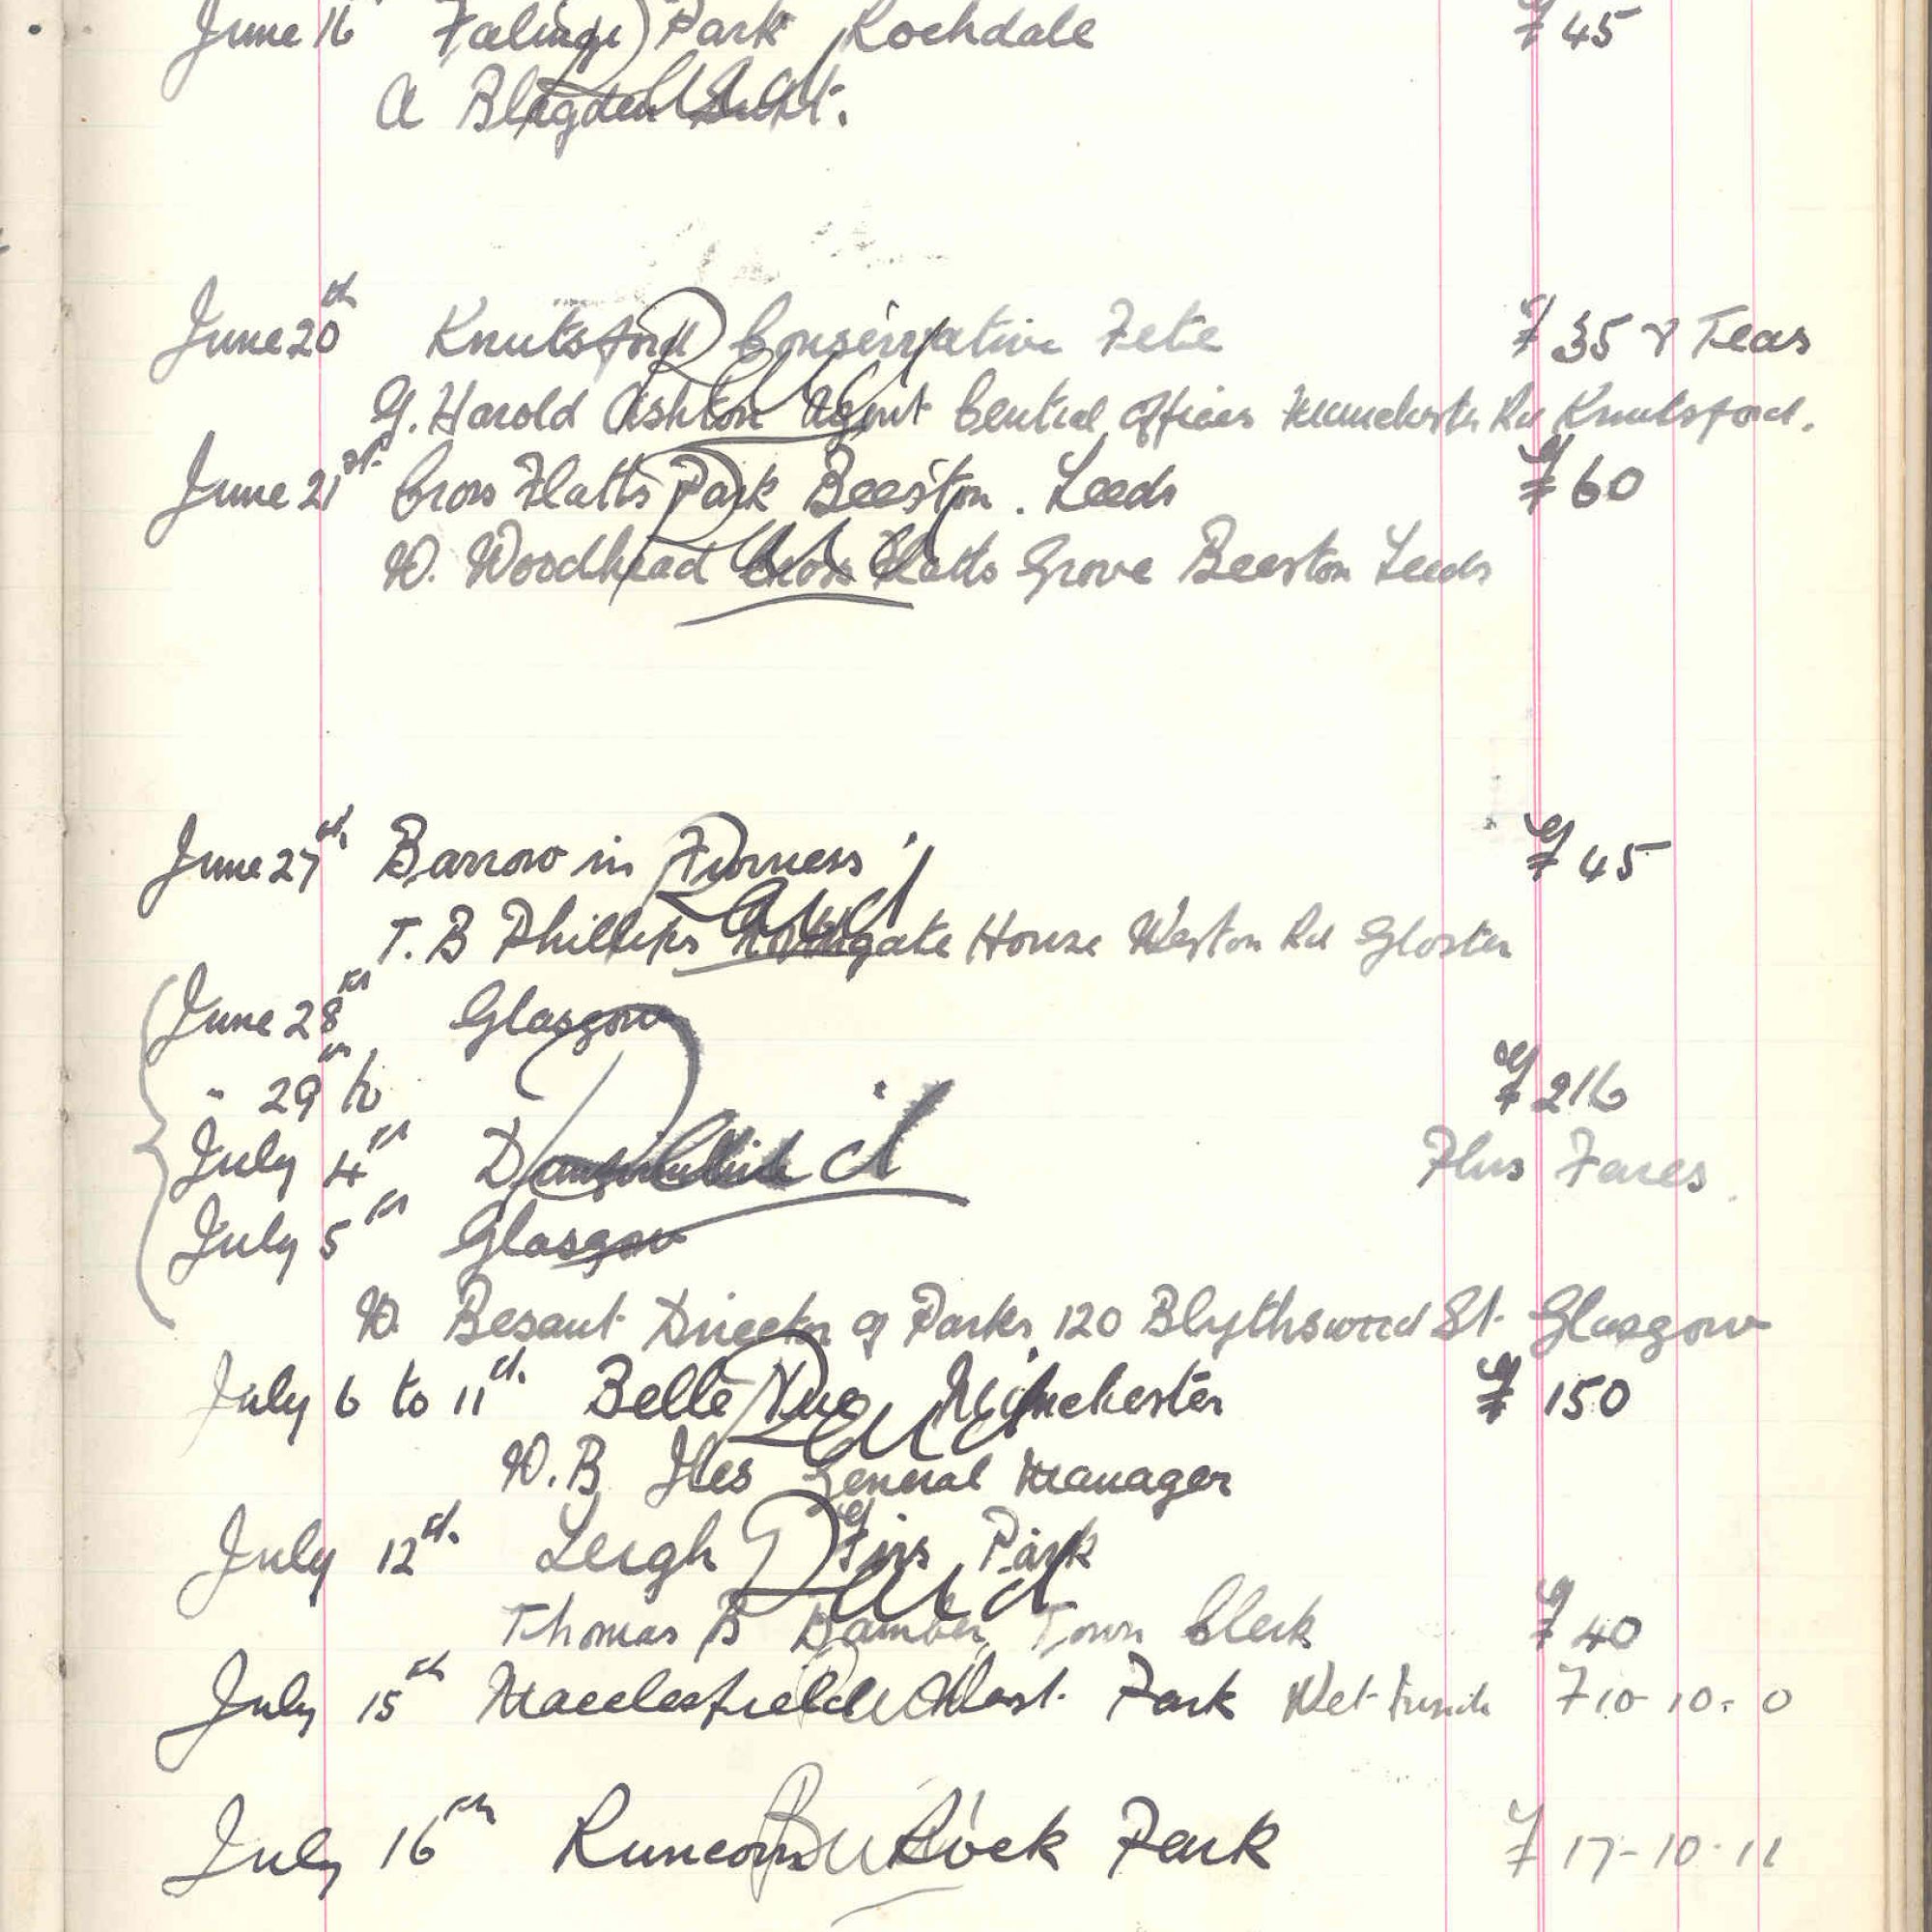 June 16 Falinge Park Rochdale £45
A Blagden Supt.
June 20th Knutsford Conservative Fete £35 & Teas
G. Harold Ashton Agent Central Offices Manchester Rd Knutsford.
June 21st Cross Flatts Park Beeston. Leeds £60
W. Woodhead Cross Flatts Grove Beeston Leeds
Paid
June 27th Barrow in Furness £45
Paid
T. B Phillips House Weston Rd Gloster
June 28th Glasgow
" 29th to £216
July 4th Paid Plus Fares.
July 5th Glasgow
W. Besant Director of Parks 120 Blythswood St. Glasgow
July 6 to 11th. Belle Vue Manchester £150
Paid
W.B Iles General Manager
July 12th. Leigh Firs Park
Paid
Thomas B Bamber Town Clerk £40
July 15th Macclesfield West Park Net £10-10-0
Paid
July 16th Runcorn Rock Park £17-10-11
Paid